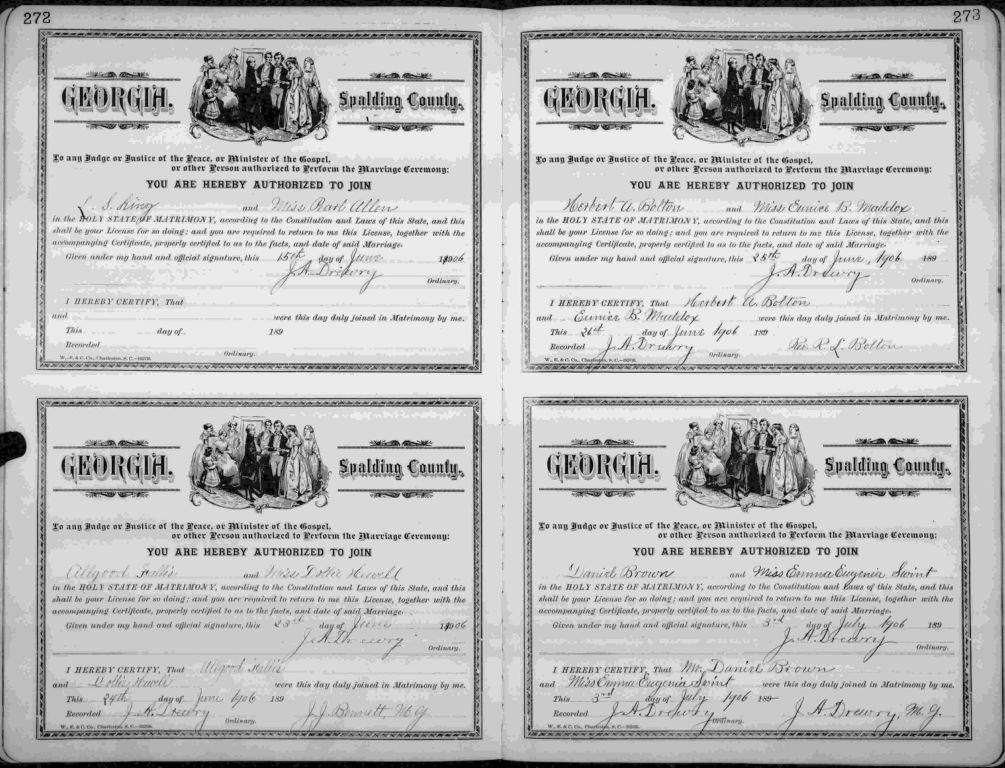 272
GEORGIA.
Spalding County.
To any Judge or Justice of the Peace, or Minister of the Gospel,
or other Person authorized to Perform the Marriage Ceremony:
YOU ARE HEREBY AUTHORIZED TO JOIN
S. King and Miss Pearl Allen
in the HOLY STATE OF MATRIMONY, according to the Constitution and Laws of this State, and this
shall be your License for so doing; and you are required to return to me this License, together with the
accompanying Certificate, properly certified as to the facts, and date of said Marriage.
Given under my hand and official signature, this 15th day of June 1906
J. A. Drewry
Ordinary.
I HEREBY CERTIFY, That
and were this day duly joined in Matrimony by me.
This day of 189
Recorded
Ordinary.
W., E. & C. Co., Charleston, S. C.
GEORGIA.
Spalding County.
To any Judge or Justice of the Peace, or Minister of the Gospel,
or other Person authorized to Perform the Marriage Ceremony:
YOU ARE HEREBY AUTHORIZED TO JOIN
Allgood and Miss Dollie Howell
in the HOLY STATE OF MATRIMONY, according to the Constitution and Laws of this State, and this
shall be your License for so doing; and you are required to return to me this License, together with the
accompanying Certificate, properly certified as to the facts, and date of said Marriage.
Given under my hand and official signature, this 23rd day of June 1906
J. A. Drewry
Ordinary.
I HEREBY CERTIFY, That Allgood
and Dollie Howell were this day duly joined in Matrimony by me.
This 24th day of June 1906 189
Recorded J. A. Drewry
Ordinary. J. J. Bennett, M. G.
W., E. & C. Co., Charleston, S. C.
273
GEORGIA.
Spalding County.
To any Judge or Justice of the Peace, or Minister of the Gospel,
or other Person authorized to Perform the Marriage Ceremony:
YOU ARE HEREBY AUTHORIZED TO JOIN
Herbert A. Bolton and Miss Eunice B. Maddox
in the HOLY STATE OF MATRIMONY, according to the Constitution and Laws of this State, and this
shall be your License for so doing; and you are required to return to me this License, together with the
accompanying Certificate, properly certified as to the facts, and date of said Marriage.
Given under my hand and official signature, this 25th day of June, 1906 189
J. A. Drewry
Ordinary.
I HEREBY CERTIFY, That Herbert A. Bolton
and Eunice B. Maddox were this day duly joined in Matrimony by me.
This 26th day of June 1906 189
Recorded J. A. Drewry Rev R. L. Bolton
Ordinary.
W., E. & C. Co., Charleston, S. C.
GEORGIA.
Spalding County.
To any Judge or Justice of the Peace, or Minister of the Gospel,
or other Person authorized to Perform the Marriage Ceremony:
YOU ARE HEREBY AUTHORIZED TO JOIN
Daniel Brown and Miss Emma Eugenia Swint
in the HOLY STATE OF MATRIMONY, according to the Constitution and Laws of this State, and this
shall be your License for so doing; and you are required to return to me this License, together with the
accompanying Certificate, properly certified as to the facts, and date of said Marriage.
Given under my hand and official signature, this 3rd day of July 1906 189
J. A. Drewry
Ordinary.
I HEREBY CERTIFY, That Mr. Daniel Brown
and Miss Emma Eugenia Swint were this day duly joined in Matrimony by me.
This 3rd day of July 1906 189
Recorded J. A. Drewry J. A. Drewry, M. G.
Ordinary.
W., E. & C. Co., Charleston, S. C.